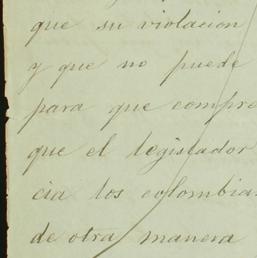 que su violacion
y que no puede
para que compre
que el legislador
cia los colombia
de otra manera